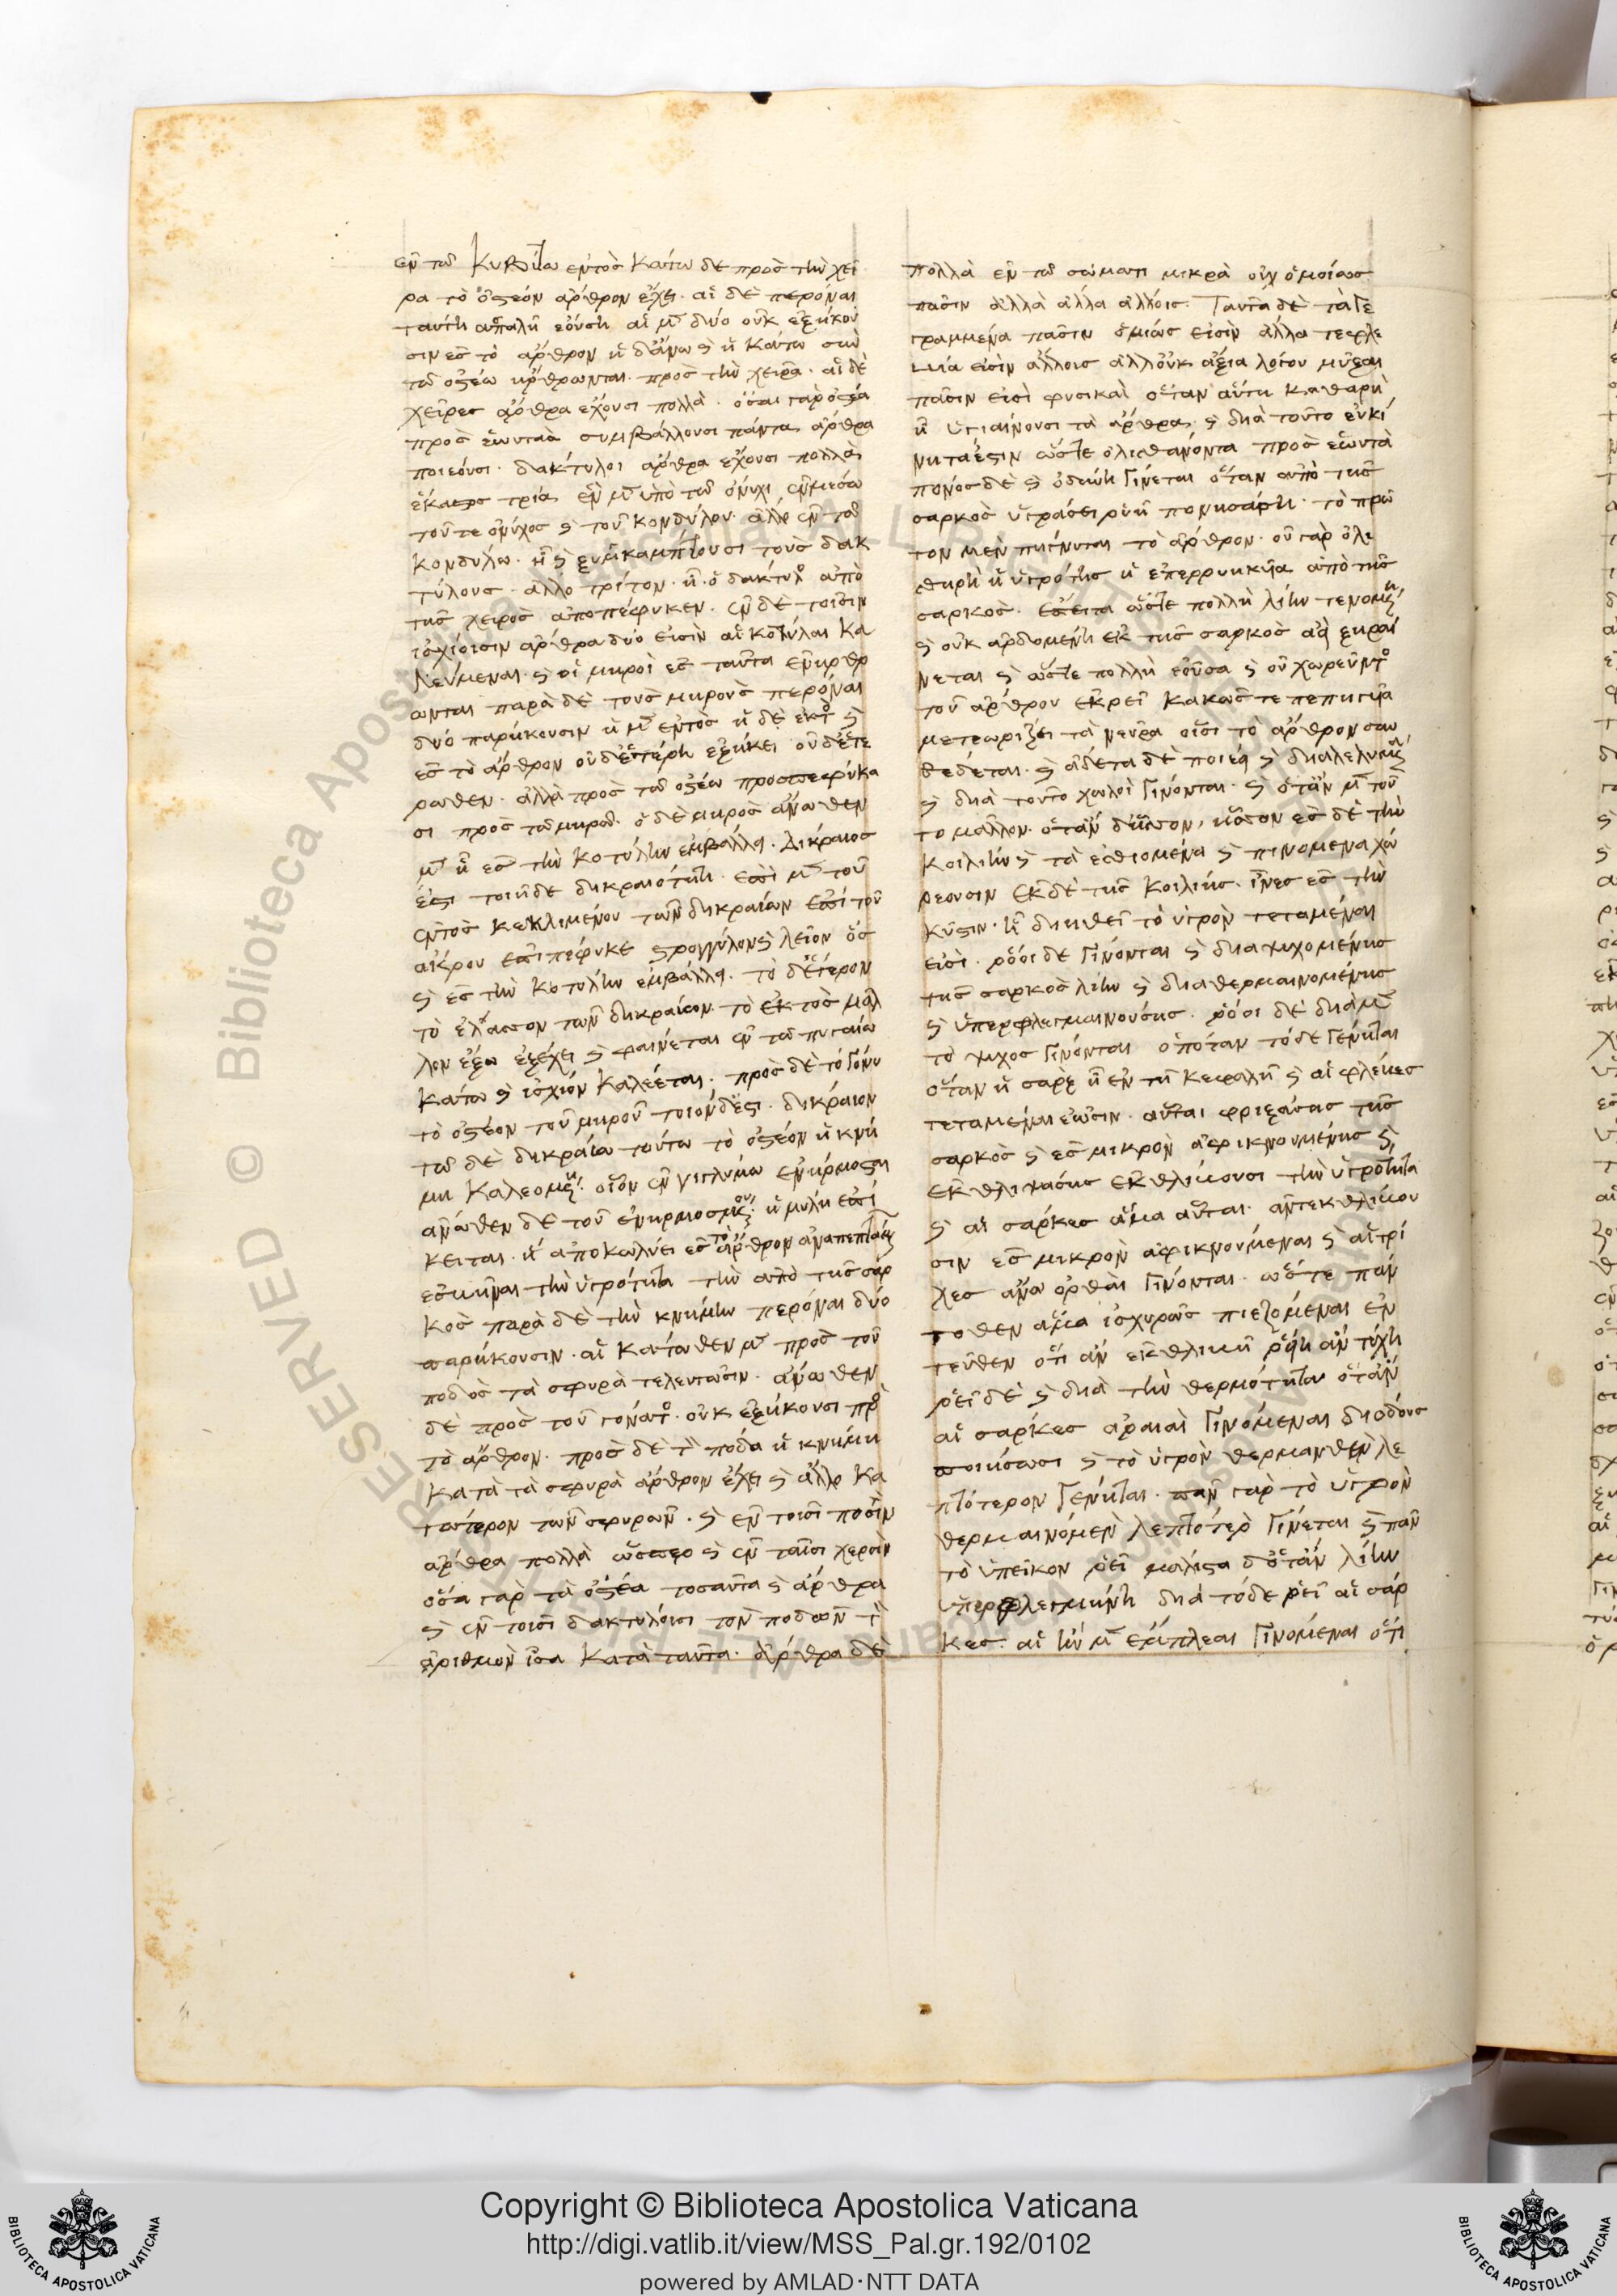 ἐν τῶ κυβίτω ἐντὸς κάτω δὲ πρὸς τὴν χεῖ
ρα τὸ ὀστέον ἄρθρον ἔχει. αἱ δὲ περόναι
ταύτη ἁπαλῆ ἐούση αἱ μ῀ δύο οὐκ ἐξήκου
σιν ἐς τὸ ἄρθρον ἡ δ' ἄνω ϗ ἡ κάτω σὺν
τῶ ὀστέω ἤρθρωνται. πρὸς τὴν χεῖρα. αἱ δὲ
χεῖρες ἄρθρα ἔχουσι πολλά. ὅσαι γὰρ ὀστέα
πρὸς ἑωυτὰ συμβάλλουσι πάντα ἄρθρα
ποιεόυσι. δακτύλοι ἄρθρα ἔχουσι πολλὰ
ἕκαστος τρία. ἓν μ῀ ὑπὸ τῶ ὄνυχι ἐν μέσω
τοῦ τε ὄνυχος ϗ τοῦ κονδύλου. ἄλλο ἐν τῶ
κονδύλω. ἧ ϗ ξυγκαμπτουσι τοὺς δακ
τύλους. ἄλλο τρίτον. ἧ. ὁ δάκτυλο ἀπὸ
τῆς χειρὸς ἀποπέφυκεν. ἐν δὲ τοῖσιν
ἰσχίοισιν ἄρθρα δύο εἰσὶν αἱ κοτύλαι κα
λεύμεναι. ϗ οἱ μηροὶ ἐς ταῦτα ἐνηρθρ
ωνται παρὰ δὲ τοὺς μηροὺς περόναι
δύο παρήκουσιν ἡ μ῀ ἐντὸς ἡ δὲ ἐκτο ϗ
ἐς τὸ ἄρθρον οὐδετέρη ἐξήκει οὐδετέ
ρωθεν. ἀλλὰ πρὸς τῶ ὀστέω προσπεφύκα
σι πρὸς τῶ μηρῶ. ὁ δὲ μηρὸς ἄνωθεν
μ῀ ἧ ἐς τὴν κοτύλην ἐμβάλλει. δίκραιος
ἐστι τοιῆδε δικραιότητι. ἐπὶ μ῀ τοῦ
ἐντὸς κεκλιμένου τῶν δικραίων ἐπὶ τοῦ
ἄκρου ἐπιπέφυκε στρογγύλον ϗ λεῖον ὃς
ϗ ἐς τὴν κοτύλην ἐμβάλλει. τὸ δ' ἕτερον
τὸ ἔλασσον τῶν δικραίων. τὸ ἐκτὸς μᾶλ
λον ἔξω ἐξέχει ϗ φαίνεται ἐν τῶ πυγαίω
κάτω ϗ ἰσχίον καλέεται. πρὸς δὲ τὸ γόνυ
τὸ ὀστέον τοῦ μηροῦ τοιόνδε ἐστι. δίκραιον
τῶ δὲ δικραίω τούτω τὸ ὀστέον ἡ κνή
μη καλεομένη. οἷον ἐν γιγλύμω ἐνήρμοσται
ἄνωθεν δὲ τοῦ ἐνηρμοσμένου. ἡ μύλη ἐπί
κειται. ἣ ἀποκωλύει ἐς τὸ ἄρθρον ἀναπεπταμέν
ἐσιῆναι τὴν ὑγρότητα τὴν ἀπὸ τῆς σαρ
κὸς παρὰ δὲ τὴν κνήμην περόναι δύο
παρήκουσιν. αἳ κάτωθεν μ῀ πρὸς τοῦ
ποδὸς τὰ σφυρὰ τελευτῶσιν. ἄνωθεν
δὲ πρὸς τοῦ γόνατο. οὐκ ἐξήκουσι προ
τὸ ἄρθρον. πρὸς δὲ τὸ πόδα ἡ κνήμη
κατὰ τὰ σφυρὰ ἄρθρον ἔχει ϗ ἄλλο κα
τώτερον τῶν σφυρῶν. ϗ ἐν τοῖσι ποσὶν
ἄρθρα πολλὰ ὥσπερ ϗ ἐν ταῖσι χερσὶν
ὅσα γὰρ τὰ ὀστέα τοσαῦτα ϗ ἄρθρα
ϗ ἐν τοῖσι δακτύλοισι τὸν ποδῶν τὸ
ἀριθμὸν ἴσα κατὰ ταῦτα. ἄρθρα δὲ
πολλὰ ἐν τῶ σώματι μικρὰ οὐχ ὁμοίως
πᾶσιν ἀλλὰ ἄλλα ἄλλοις. ταῦτα δὲ τὰ γε
γραμμένα πᾶσιν ὁμίως εἰσὶν ἄλλα τε φλε
μία εἰσὶν ἄλλοις ἀλλ' οὐκ ἄξια λόγου μῦξαι
πᾶσιν εἰσὶ φυσικαὶ ὅταν αὕτη καθαρὴ
ἧ ὑγιαίνουσι τὰ ἄρθρα. ϗ διὰ τοῦτο εὐκί
νητα ἐστιν ὥστε ὀλισθάνοντα πρὸς ἑωυτὰ
πόνος δὲ ϗ ὀδύνη γίνεται ὅταν ἀπὸ τῆς
σαρκὸς ὑγρασίη ῥυῆ πονησάση. τὸ πρῶ
τον μὲν πήγνυται τὸ ἄρθρον. οὐ γὰρ ὀλι
σθηρὴ ἡ ὑγρότης ἡ ἐπερρυηκυῖα ἀπὸ τῆς
σαρκὸς. ἔπειτα ὥστε πολλὴ λίην γενομένη
ϗ οὐκ ἀρδομένη ἐκ τῆς σαρκὸς ἀεὶ ξηραί
νεται ϗ ὥστε πολλὴ ἐοῦσα ϗ οὐ χωρεῦντο
τοῦ ἄρθρου ἐκρεῖ κακῶς τε πεπηγυῖα
μετεωρίζει τὰ νεῦρα οἷσι τὸ ἄρθρον συν
δέδεται. ϗ ἄδετα δὲ ποιέει ϗ διαλελυμένα
ϗ διὰ τοῦτο χωλοὶ γίνονται. ϗ ὅταν μ῀ τοῦ
το μᾶλλον. ὅταν δ' ἧσσον, ἧσσον ἐς δὲ τὴν
κοιλίην ϗ τὰ ἐσθιομενα ϗ πινομενα χω
ρέουσιν ἐκ δὲ τῆς κοιλίης. ἶνες ἐς τὴν
κύστιν. ἣ διηθεῖ τὸ ὑγρὸν τεταμέναι
εἰσὶ. ῥόοι δὲ γίνονται ϗ διαψυχομένης
τῆς σαρκὸς λίην ϗ διαθερμαινομένης
ϗ ὑπερφλεγμαινούσης. ῥόοι δὲ διὰ μ῀
τὸ ψύχος γίνονται ὁπόταν τόδε γένηται
ὅταν ἡ σὰρξ ἡ ἐν τῆ κεφαλῆ ϗ αἱ φλέβες
τεταμέναι ἔωσιν. αὗται φριξάσας τῆς
σαρκὸς ϗ ἐς μικρὸν ἀφικνουμένης ϗ
ἐκθλιψάσης ἐκθλίβουσι τὴν ὑγρότητα
ϗ αἱ σάρκες ἅμα αὗται. ἀντεκθλίβου
σιν ἐς μικρὸν ἀφικνούμεναι ϗ αἱ τρί
χες ἄνω ὀρθαι γίνονται. ὥστε παν
τοθεν ἅμα ἰσχυρῶς πιεζόμεναι ἐν
τεῦθεν ὅτι ἂν ἐκθλιβῆ ῥέη ἂν τύχη
ῥεῖ δὲ ϗ διὰ τὴν θερμότητα ὅταν
αἱ σάρκες ἀραιαὶ γινόμεναι διόδους
ποιήσωσι ϗ τὸ ὑγρὸν θερμανθὲν λε
πτότερον γένηται. πᾶν γὰρ τὸ ὑγρὸν
θερμαινόμενον λεπτότερο γίνεται ϗ πᾶν
τὸ ὑπεῖκον ῥεῖ μάλιστα δ' ὅταν λίην
ὑπερφλεγμήνη διὰ τόδε ῥεῖ αἱ σάρ
κες. αἱ λίην μ῀ ἔμπλεαι γινόμεναι ὅτι
Biblioteca Apostolica Vaticana
ALL RIGHTS RESERVED © Biblioteca Apostolica Vaticana
Copyright © Biblioteca Apostolica Vaticana
http://digi.vatlib.it/view/MSS_Pal.gr.192/0102
powered by AMLAD·NTT DATA
BIBLIOTECA APOSTOLICA VATICANA
BIBLIOTECA APOSTOLICA VATICANA